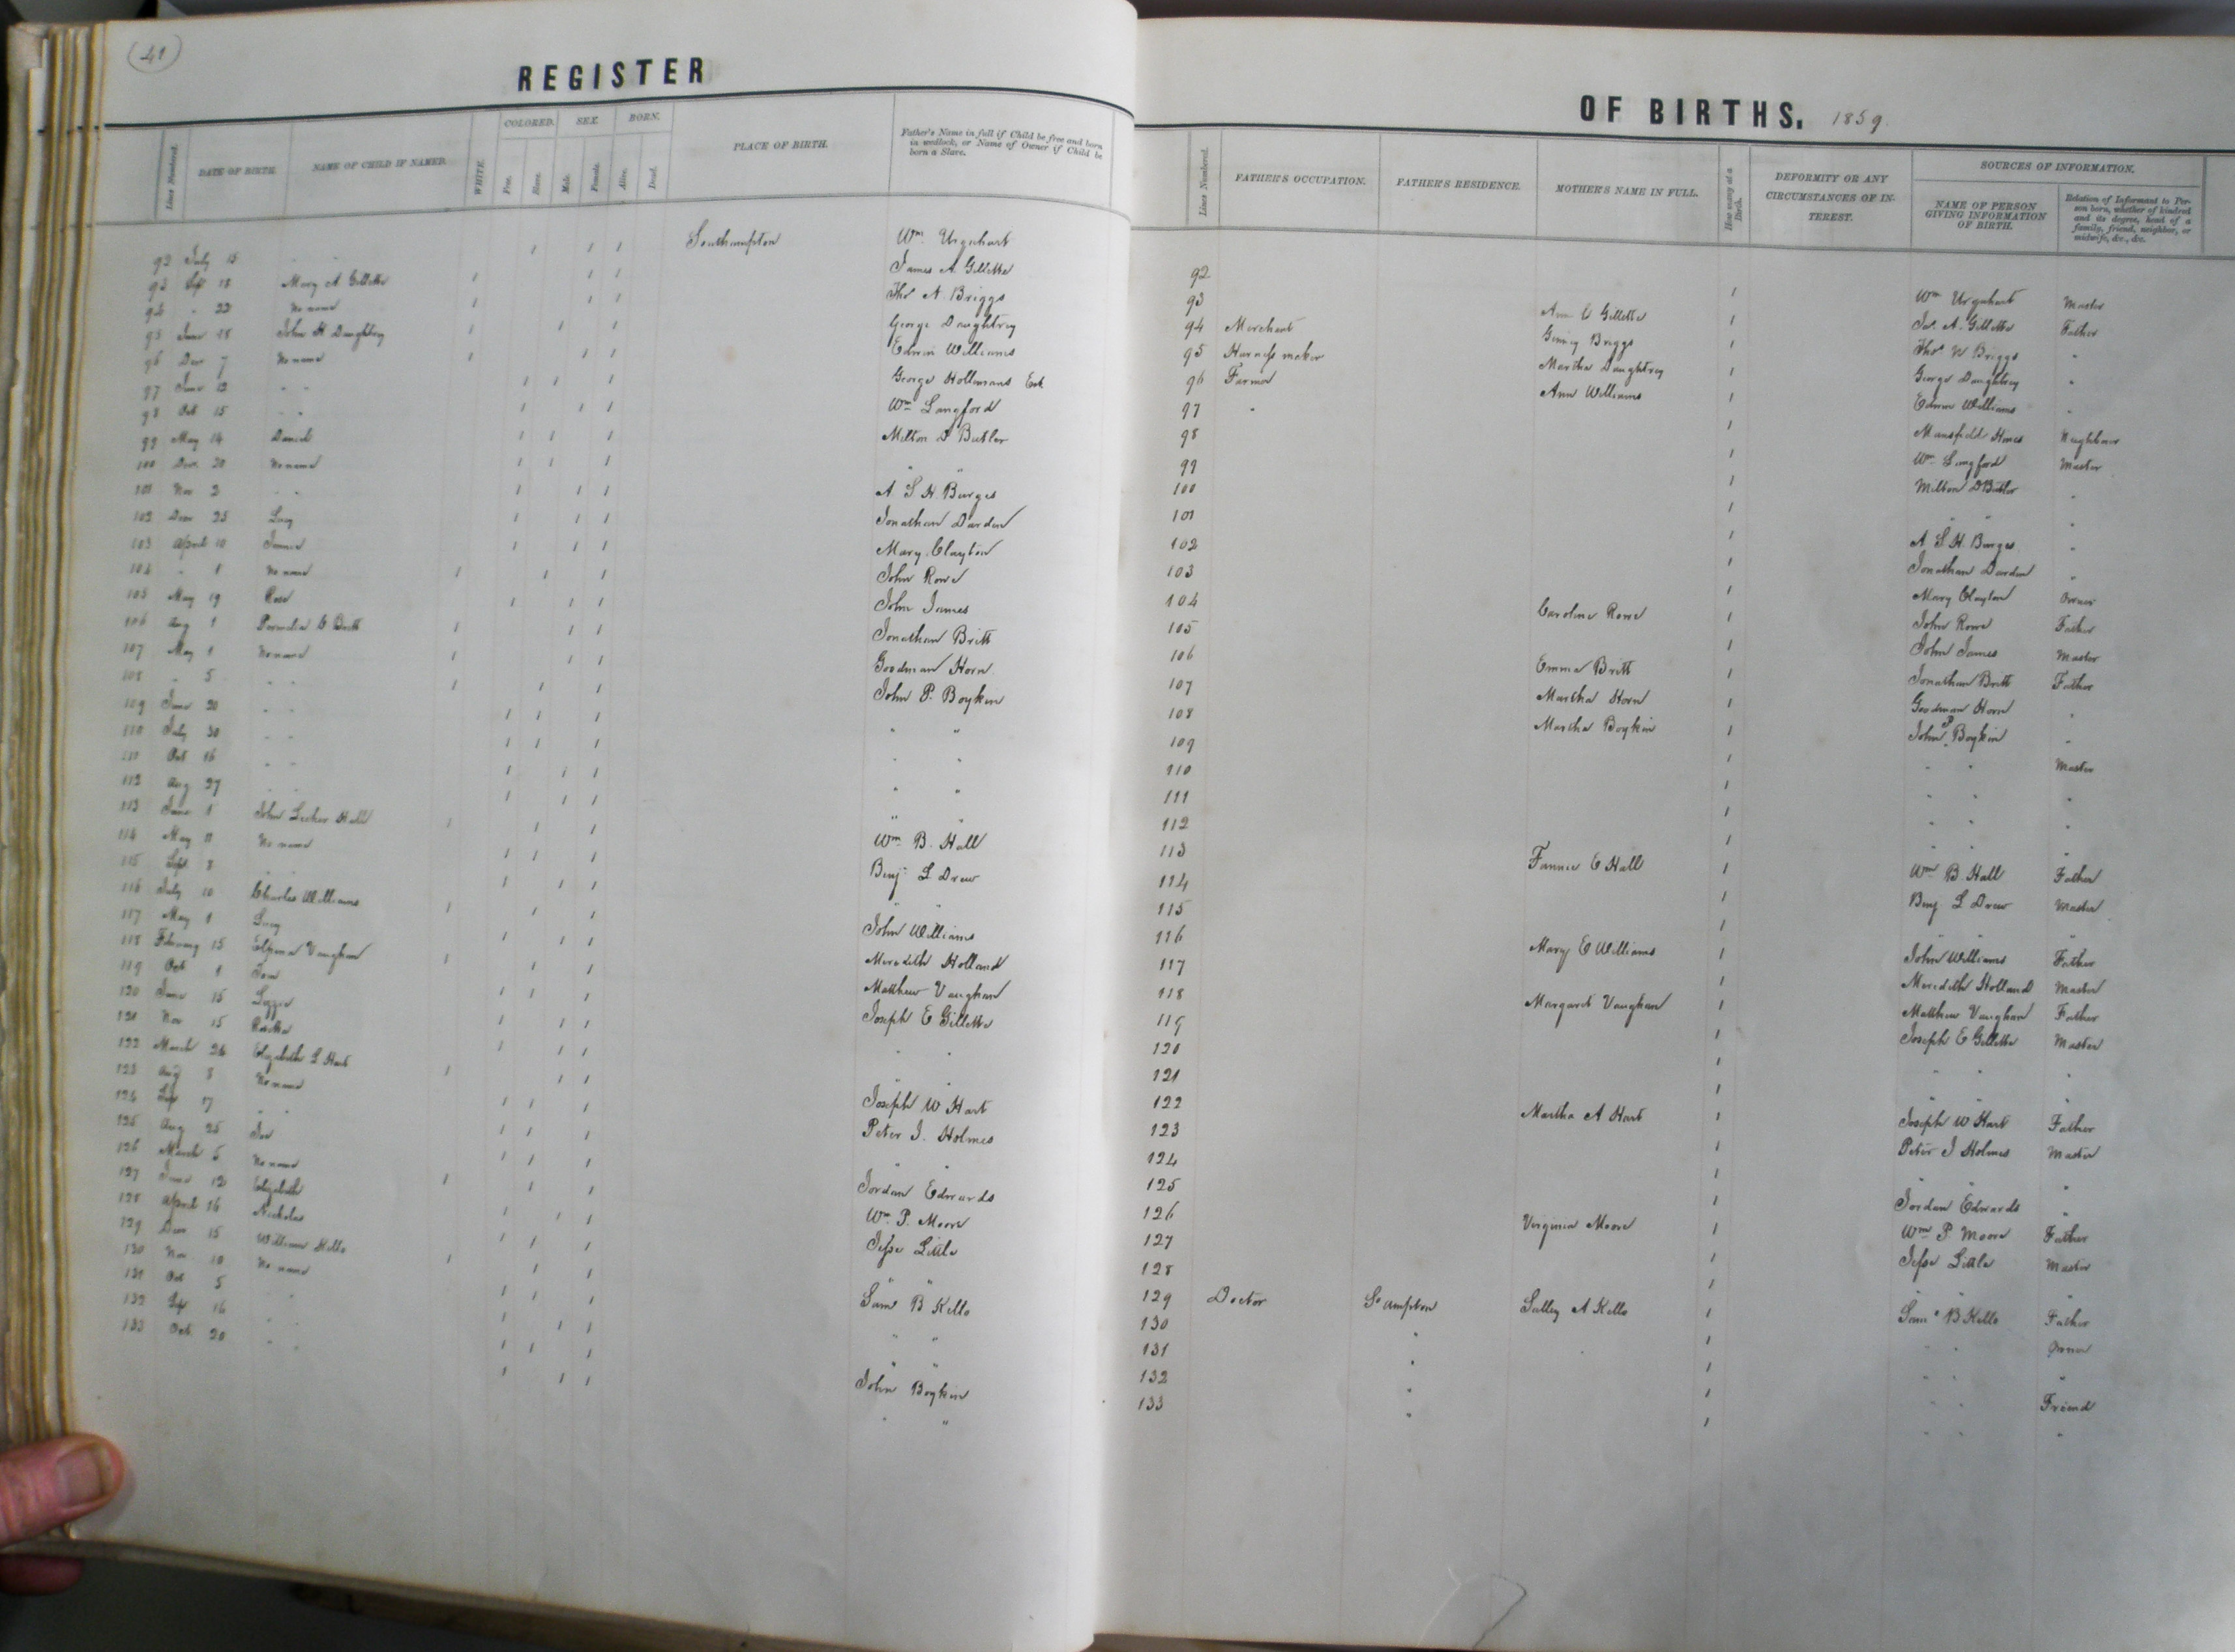 (41)
REGISTER
Lines Numbered.
DATE OF BIRTH.
NAME OF CHILD IF NAMED.
WHITE.
COLORED.
Free.
Slave.
SEX.
Male.
Female.
BORN.
Alive.
Dead.
PLACE OF BIRTH.
Father's Name in full if Child be free and born
in wedlock, or Name of Owner if Child be
born a Slave.
92 July 15 " " Southampton Wm. Urquhart
93 Sep 18 Mary A Gillette James A. Gillette
94 " 22 No name Tho. N. Briggs
95 June 28 John H Daughtrey George Daughtrey
96 Dec 7 No name Edwin Williams
97 June 12 " " George Hollimans Est
98 Oct 15 " " Wm Langford
99 May 14 Daniel Milton D Butler
100 Dec 20 No name " "
101 Nov 2 " " A S H. Burges
102 Dec 25 Lucy Jonathan Darden
103 April 10 Mary Clayton
104 " 1 No name John Rowe
105 May 19 Rose John James
106 Aug 1 Permelia Britt Jonathan Britt
107 May 1 No name Goodman Horn
108 " 5 " " John P. Boykin
109 June 20 " " " "
110 July 30 " " " "
111 Oct 16 " " " "
112 Aug 27 " " " "
113 June 1 John Hall Wm B. Hall
114 May 11 No name Benj. L Drew
115 Sept 8 " " " "
116 July 10 Charles Williams John Williams
117 May 1 Lucy Meredith Holland
118 February 15 Vaughan Matthew Vaughan
119 Oct 1 Tom Joseph E Gillette
120 June 15 " "
121 Nov 15 " "
122 March 26 Elizabeth L Hart Joseph W Hart
123 Aug 8 No name Peter J. Holmes
124 Sep 17 " " " "
125 Aug 25 Joe Jordan Edwards
126 March 5 No name Wm. P. Moore
127 June 12 Elizabeth Jesse Little
128 April 16 Nicholas " "
129 Dec 15 William Kello Sam B Kello
130 Nov 10 No name " "
131 Oct 5 " " " "
132 Sep 16 " " John Boykin
133 Oct 20 " " " "
OF BIRTHS. 1859.
Lines Numbered.
FATHER'S OCCUPATION.
FATHER'S RESIDENCE.
MOTHER'S NAME IN FULL.
How many at a
Birth.
DEFORMITY OR ANY
CIRCUMSTANCES OF IN-
TEREST.
SOURCES OF INFORMATION.
NAME OF PERSON
GIVING INFORMATION
OF BIRTH.
Relation of Informant to Per-
son born, whether of kindred
and its degree, head of a
family, friend, neighbor, or
midwife, &c., &c.
92 1 Wm Urquhart Master
93 Ann Gillette 1 Jas. A. Gillette Father
94 Merchant Ginny Briggs 1 Thos N Briggs "
95 Harness maker Martha Daughtrey 1 George Daughtrey "
96 Farmer Ann Williams 1 Edwin Williams "
97 " 1 Mansfield Neighbour
98 1 Wm Langford Master
99 1 Milton D Butler "
100 1 " " "
101 1 A. S H. Burges "
102 1 Jonathan Darden "
103 1 Mary Clayton Owner
104 Caroline Rowe 1 John Rowe Father
105 1 John James Master
106 Emma Britt 1 Jonathan Britt Father
107 Martha Horn 1 Goodman Horn "
108 Martha Boykin 1 John P Boykin "
109 1 " " Master
110 1 " " "
111 1 " " "
112 1 " " "
113 Fannie C Hall 1 Wm B. Hall Father
114 1 Benj L Drew Master
115 1 " "
116 Mary E Williams 1 John Williams Father
117 1 Meredith Holland Master
118 Margaret Vaughan 1 Matthew Vaughan Father
119 1 Joseph E Gillette Master
120 1 " " "
121 1 " " "
122 Martha A Hart 1 Joseph W Hart Father
123 1 Peter J Holmes Master
124 1 " " "
125 1 Jordan Edwards "
126 Virginia Moore 1 Wm P Moore Father
127 1 Jesse Little Master
128 1 " "
129 Doctor So ampton Salley A Kello 1 Sam. B Kello Father
130 " 1 " " Owner
131 " 1 " " "
132 " 1 " " Friend
133 " 1 " " "